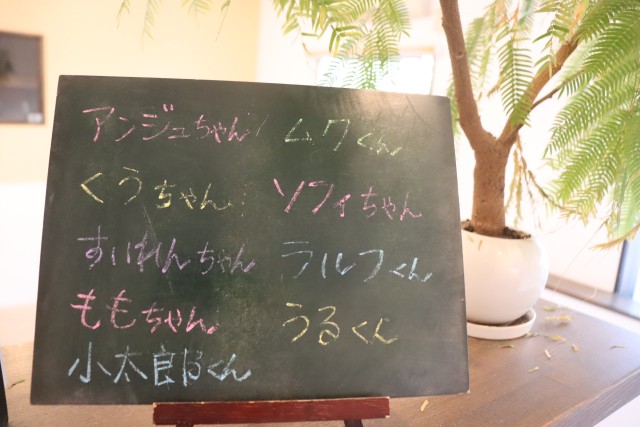 アンジュちゃん ムクくん
くうちゃん ソフィちゃん
すいれんちゃん ラルフくん
ももちゃん うるくん
小太郎くん